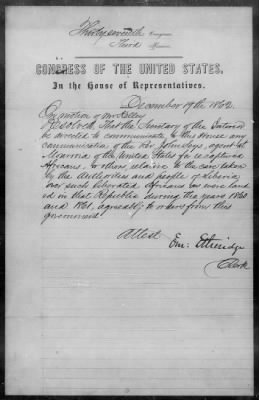 Thirty seventh Congress
Third Session
CONGRESS OF THE UNITED STATES.
In the House of Representatives.
December 19th 1862.
On motion of Mr Kelley
Resolved, That the Secretary of the Interior
be directed to communicate to this House any
communication of the Rev John Seys, agent at
Monrovia of the United States for recaptured
Africans, or others, relative to the care taken
by the Authorities and people of Liberia
over such liberated Africans as were land
ed in that Republic during the years 1860
and 1861, agreeably to orders from this
government.
Attest
Em: Etheridge
Clerk